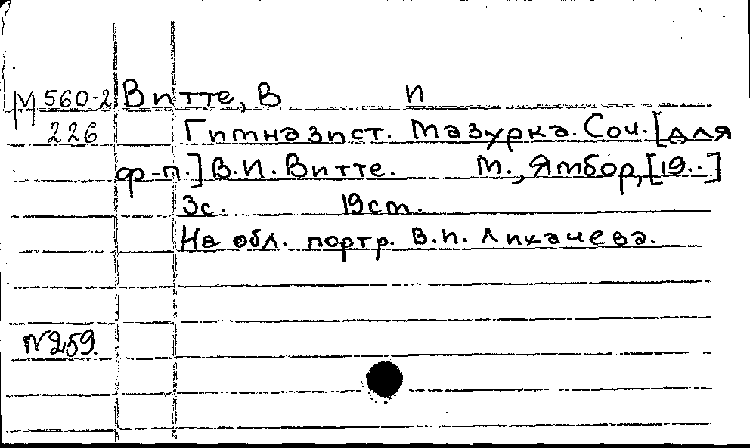 М 560-2 Витте, В И
226 Гимназист. Мазурка. Соч. [для
ф-п.] В.И. Витте. М., Ямбор, [19..]
3с. 19см.
На обл. портр. В.П. Лихачева.
N259.